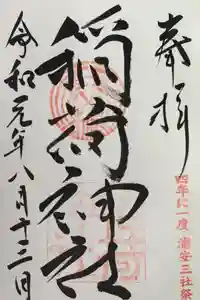 奉拝
四年に一度 浦安三社祭
稲荷神社
令和元年八月十二日